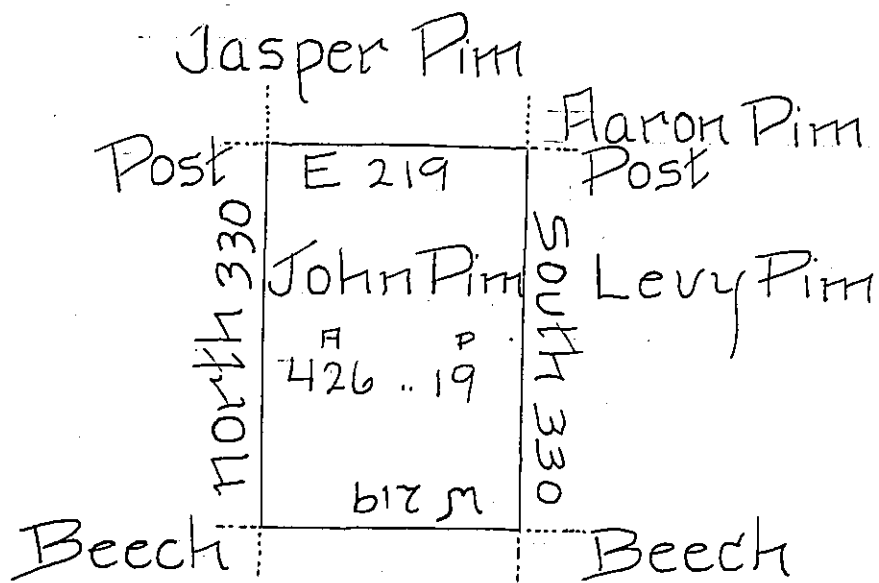 Jasper Pim
Aaron Pim
Post
E 219
Post
North 330
John Pim
South 330
Levy Pim
A P
426 .. 19
W 219
Beech
Beech